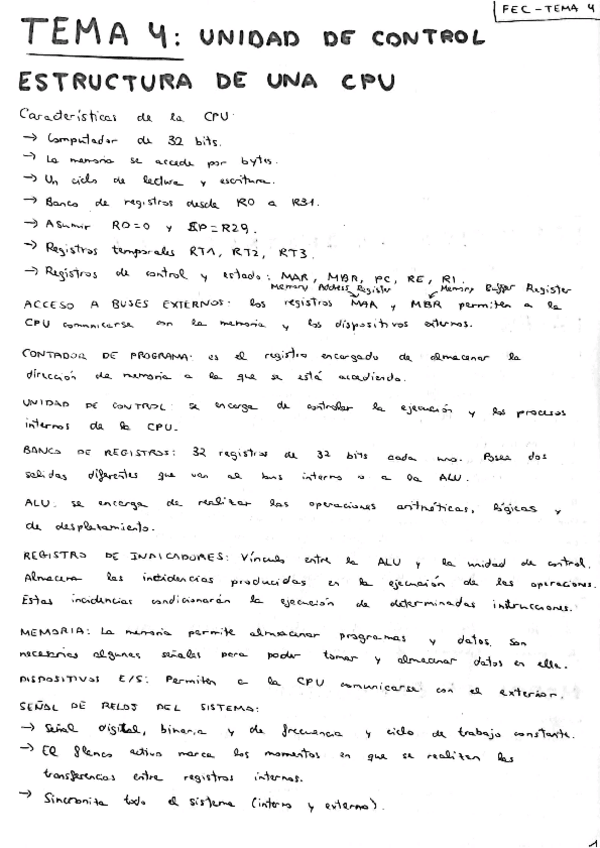 FEC - TEMA 4
TEMA 4: UNIDAD DE CONTROL
ESTRUCTURA DE UNA CPU
Características de la CPU:
→ Computador de 32 bits.
→ La memoria se accede por bytes.
→ Un ciclo de lectura y escritura.
→ Banco de registros desde R0 a R31.
→ Asumir R0=0 y SP=R29.
→ Registros temporales RT1, RT2, RT3.
→ Registros de control y estado: MAR, MBR, PC, RE, RI.
Memory Address Register Memory Buffer Register
ACCESO A BUSES EXTERNOS: los registros MAR y MBR permiten a la
CPU comunicarse con la memoria y los dispositivos externos.
CONTADOR DE PROGRAMA: es el registro encargado de almacenar la
dirección de memoria a la que se está accediendo.
UNIDAD DE CONTROL: se encarga de controlar la ejecución y los procesos
internos de la CPU.
BANCO DE REGISTROS: 32 registros de 32 bits cada uno. Posee dos
salidas diferentes que van al bus interno o a la ALU.
ALU: se encarga de realizar las operaciones aritméticas, lógicas y
de desplazamiento.
REGISTRO DE INDICADORES: Vínculo entre la ALU y la unidad de control.
Almacena las incidencias producidas en la ejecución de las operaciones.
Estas incidencias condicionarán la ejecución de determinadas instrucciones.
MEMORIA: La memoria permite almacenar programas y datos. Son
necesarias algunas señales para poder tomar y almacenar datos en ella.
DISPOSITIVOS E/S: Permiten a la CPU comunicarse con el exterior.
SEÑAL DE RELOJ DEL SISTEMA:
→ Señal digital, binaria y de frecuencia y ciclo de trabajo constante.
→ El flanco activo marca los momentos en que se realizan las
transferencias entre registros internos.
→ Sincroniza todo el sistema (interno y externo).
1